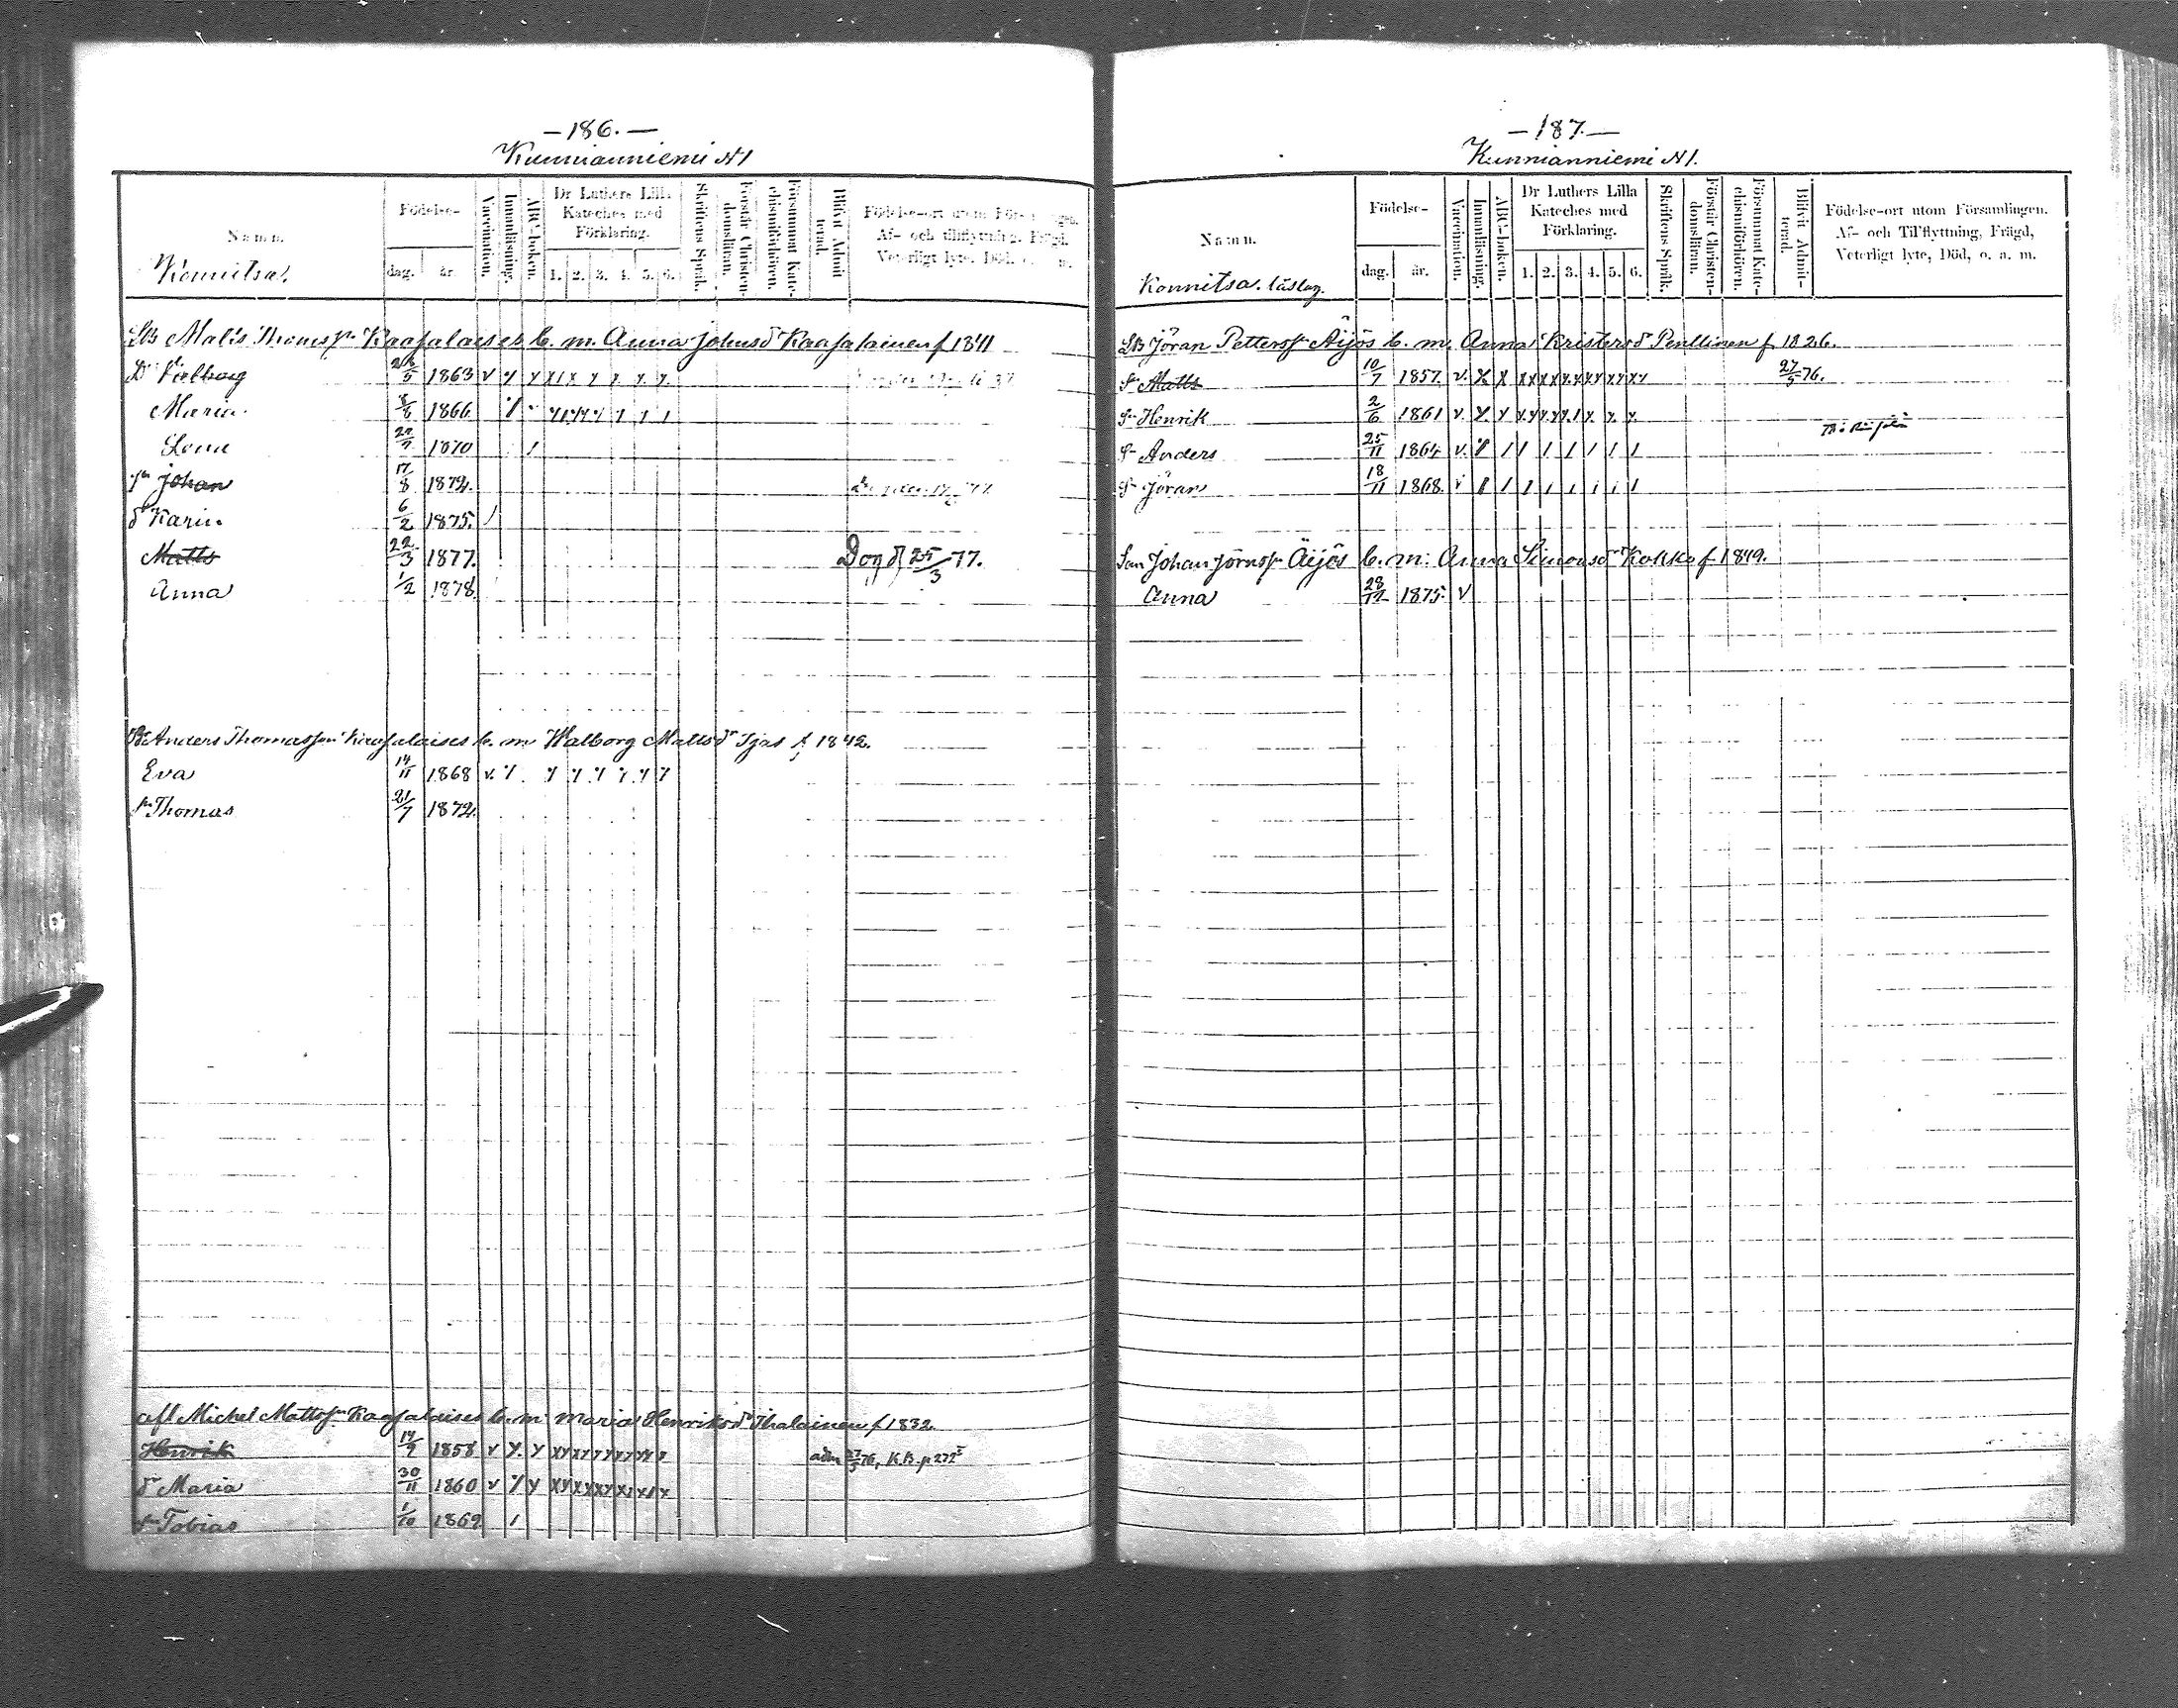 —186.—
Kunnianniemi N1
Namn.
Konnitsa.
Födelse-
dag.
år.
Vaccination.
Innanläsning.
ABC-boken.
Dr Luthers Lilla
Kateches med
Förklaring.
1. 2. 3. 4. 5. 6.
Skriftens Språk.
Förstår Christen-
domsläran.
Försummat Kate-
chismiförhören.
Blifvit Admit-
terad.
Födelse-ort utom
Af- och tillflyttning, Frägd,
Veterligt lyte, Död,
Matts Thomasson Kaasalaises b. m. Anna Johansd Kaasalainen f 1841
Valborg 5 1863
Maria 1866
Lena 1870
Johan 17/8 1872
dr Karin 6/2 1875
Matts 22/3 1877. Död 25/3 77.
Anna 1/2 1878
Anders Thomasson Kaasalaises b. m Walborg Mattsdr Ijas f 1842.
Eva 14/11 1868
sn Thomas 21/7 1872
afl Michel Mattsson Kaasalaises b. m. Maria Henriksdr Ihalainen f 1832
Henrik 14/9 1858 adm 27/5 76, K.B. p 272
dr Maria 30/11 1860
sn Tobias 1/10 1869
—187.—
Kunnianniemi N1.
Namn.
Konnitsa. läslag.
Födelse-
dag.
år.
Vaccination.
Innanläsning.
ABC-boken.
Dr Luthers Lilla
Kateches med
Förklaring.
1. 2. 3. 4. 5. 6.
Skriftens Språk.
Förstår Christen-
domsläran.
Försummat Kate-
chismiförhören.
Blifvit Admit-
terad.
Födelse-ort utom Församlingen.
Af- och Tillflyttning, Frägd,
Veterligt lyte, Död, o. a. m.
Jöran Pettersson Äijös b. m. Anna Kristersd Penttinen f 1826.
sn Matts 10/7 1857. 27/5 76.
sn Henrik 2/6 1861
sn Anders 25/11 1864
sn Jöran 18/11 1868
Johan Jörnsson Äijös b. m. Anna Simonsdr Kokko f 1849.
Anna 28/12 1875.